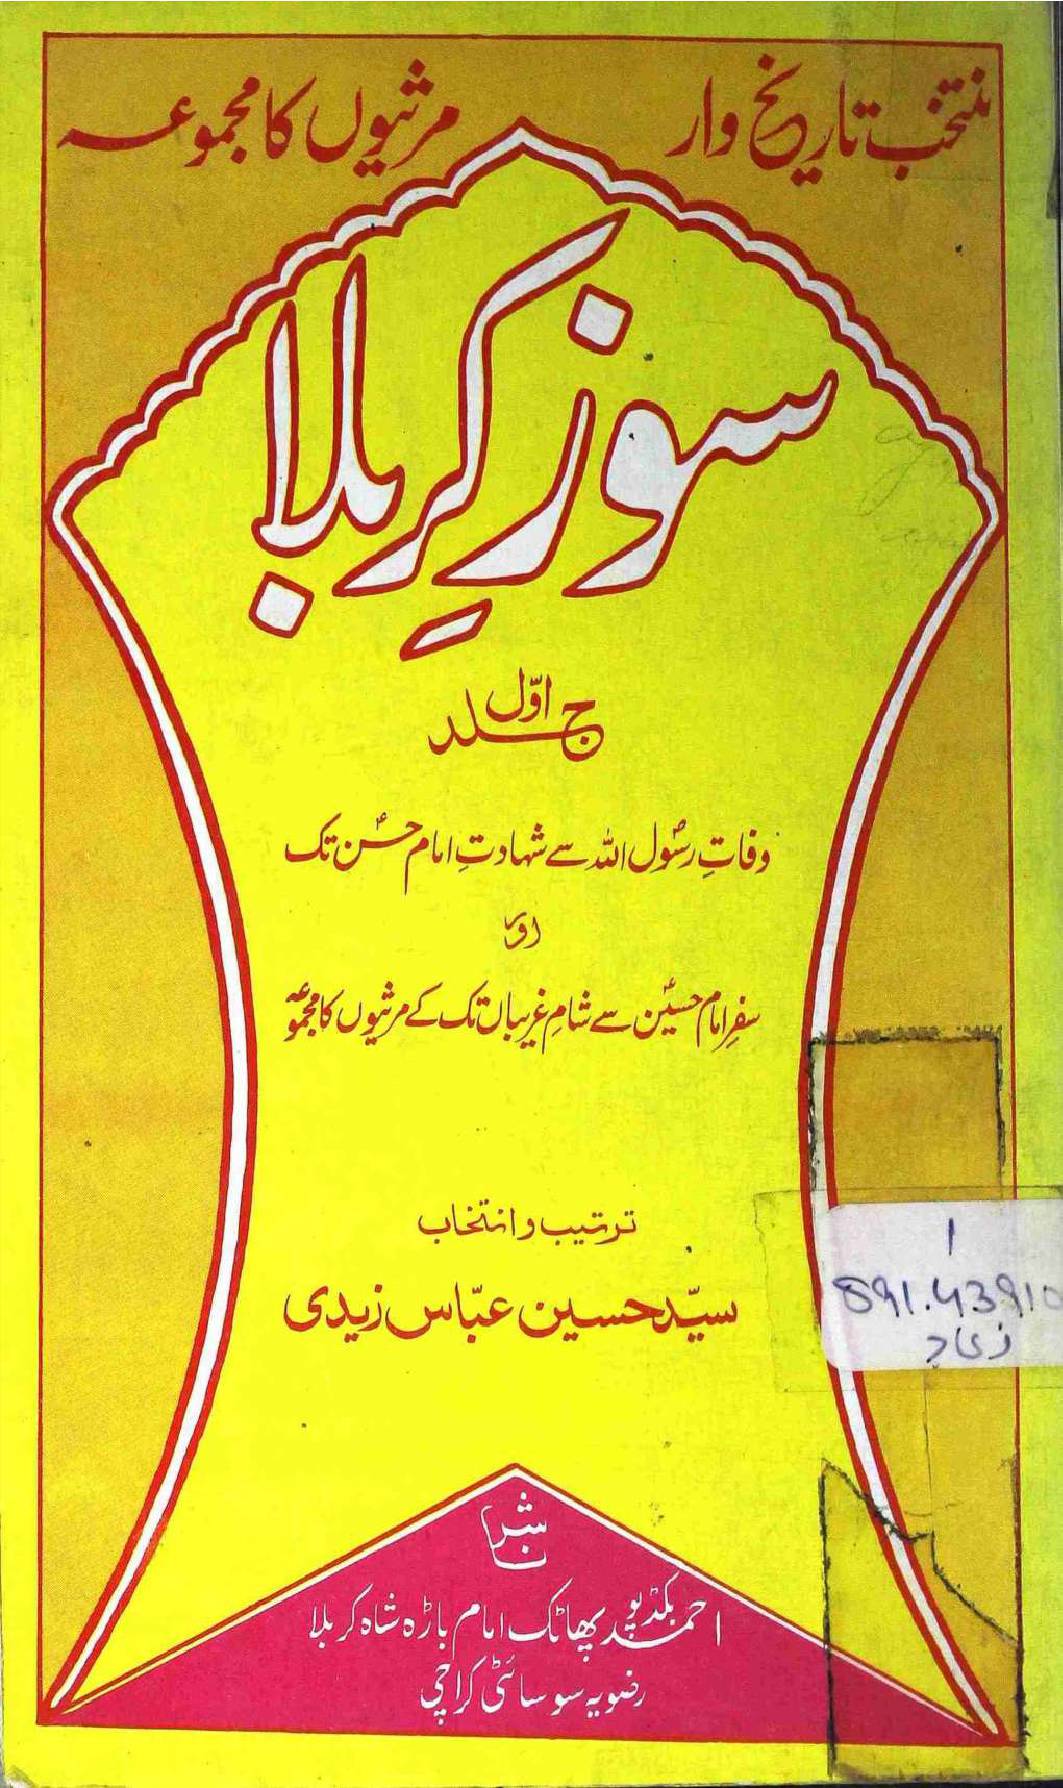 منتخب تاریخ وار مرثیوں کا مجموعہ
سوزِ کربلا
جلد اوّل
وفاتِ رسُولؐ اللہ سے شہادتِ امام حسنؑ تک
اور
سفرِ امام حسینؑ سے شامِ غریباں تک کے مرثیوں کا مجموعہ
ترتیب و انتخاب
سیّد حسین عبّاس زیدی
1
891.43910
ناشر
احمد بکڈپو پھاٹک امام باڑہ شاہ کربلا
رضویہ سوسائٹی کراچی